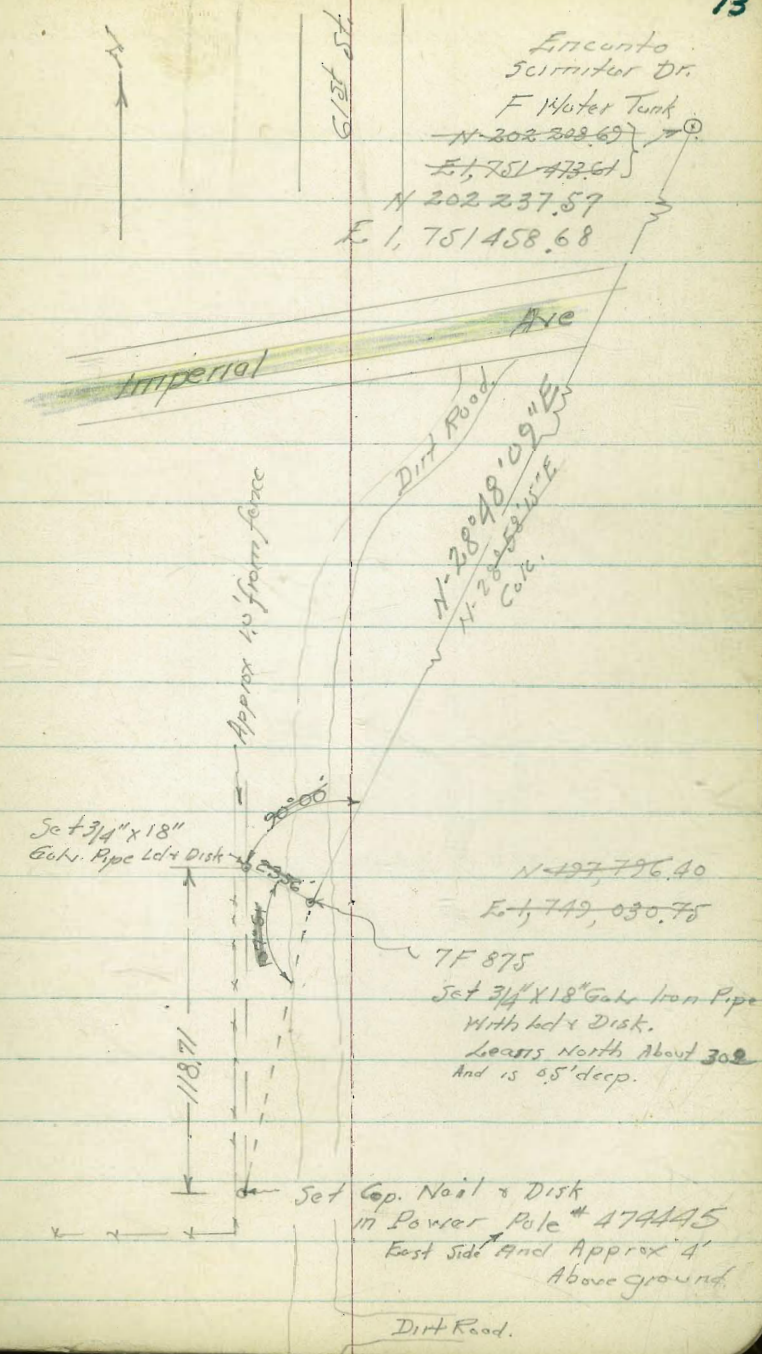 13
N
61st St.
Encanto
Scimitar Dr.
F Water Tank
N-202 208.69
E 1,751 473.61
N 202 237.57
E 1,751 458.68
Imperial Ave
Dirt Road
N-28°48'09"E
N-28°58'15"E
Calc.
Approx 1.0' from fence
90°00'
Set 3/4" x 18"
Galv. Pipe Ld & Disk
23.56'
N 197,796.40
E 1,749,030.75
7F 875
Set 3/4" X 18" Galv Iron Pipe
With Ld & Disk.
Leans North About
And is 0.5' deep.
118.71
Set Cop. Nail & Disk
in Power Pole # 474445
East Side And Approx 4'
Above ground
Dirt Road.